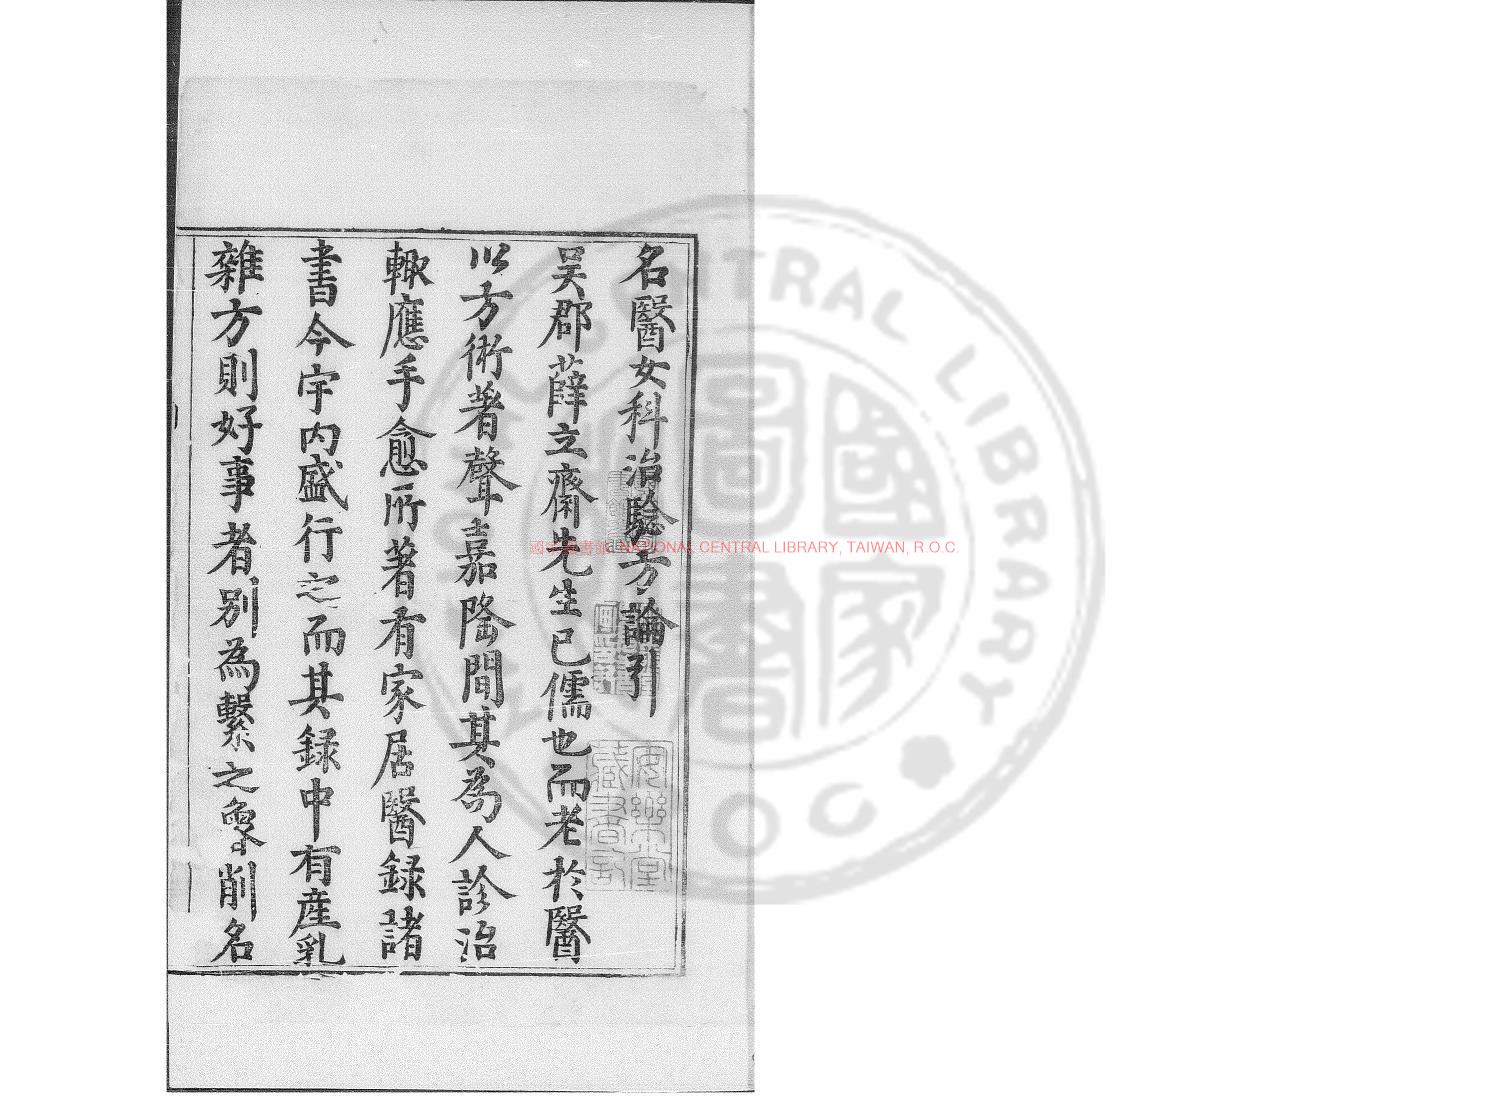 名醫女科治驗方論引
吳郡薛立齋先生已儒也而老於醫
以方術著聲嘉隆間其為人診治
輙應手愈所著有家居醫錄諸
書今宇内盛行之而其録中有產乳
雜方則好事者别為繫之兼削名
安樂堂
藏書記
國家圖書館 NATIONAL CENTRAL LIBRARY, TAIWAN, R.O.C.
CENTRAL LIBRARY
國家
圖書